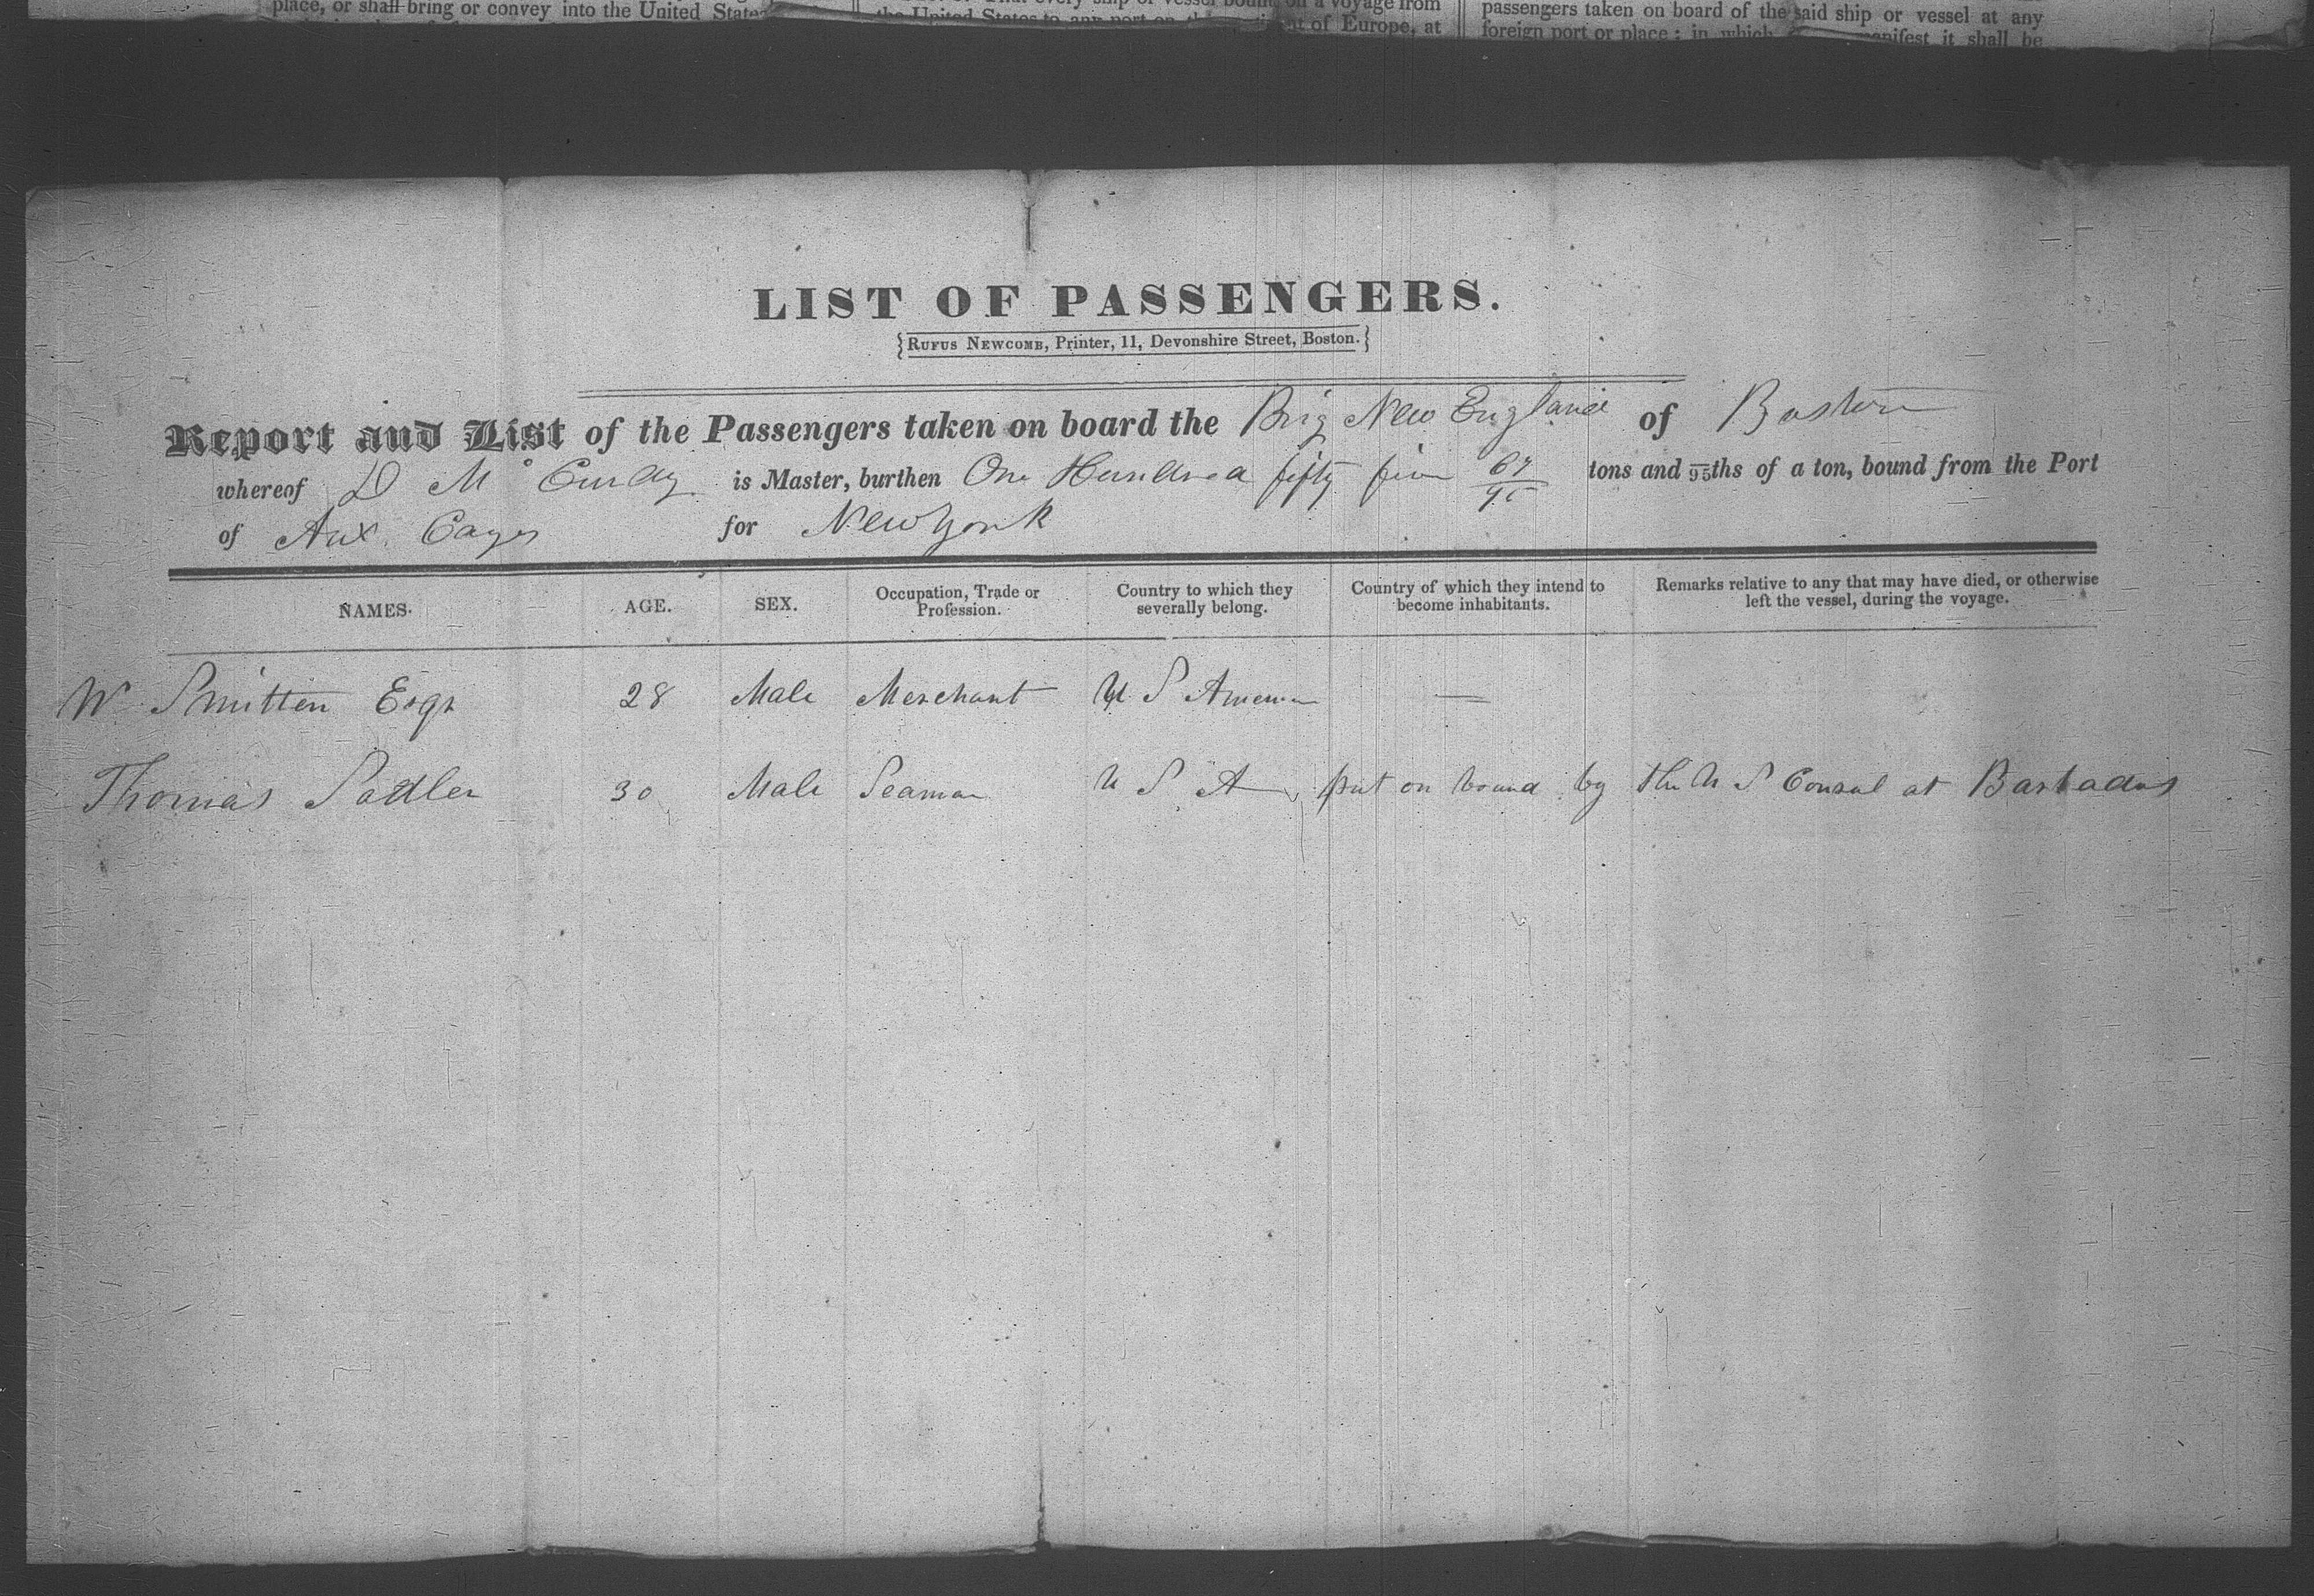 place, or shall bring or convey into the United States
the United States to any port on the
a voyage from
of Europe, at
passengers taken on board of the said ship or vessel at any
foreign port or place; in which manifest it shall be
LIST OF PASSENGERS.
{RUFUS NEWCOMB, Printer, 11, Devonshire Street, Boston.}
Report and List of the Passengers taken on board the Brig New England of Boston
whereof D Mc Curdy is Master, burthen One Hundred fifty five 67/95 tons and 95ths of a ton, bound from the Port
of Aux Cayes for New York
NAMES. AGE. SEX. Occupation, Trade or Profession. Country to which they severally belong. Country of which they intend to become inhabitants. Remarks relative to any that may have died, or otherwise left the vessel, during the voyage.
W Smitten Esqr 28 Male Merchant U S America —
Thomas Sadler 30 Male Seaman U S A put on board by the U S Consul at Barbados